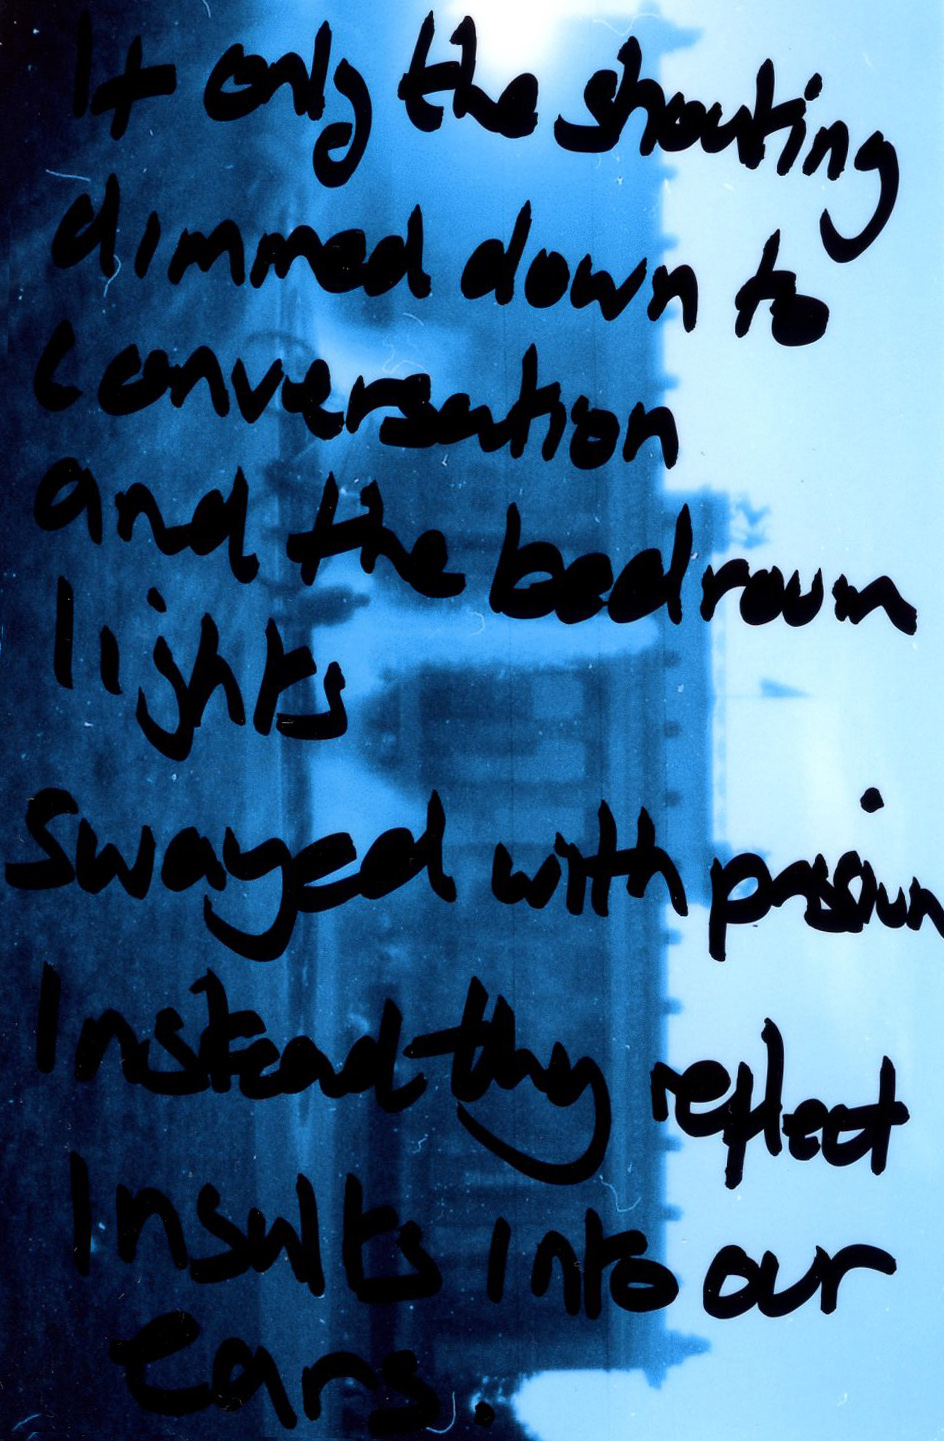 If only the shouting
dimmed down to
conversation
and the bedroom
lights
Swayed with passion
Instead they reflect
Insults into our
Ears.